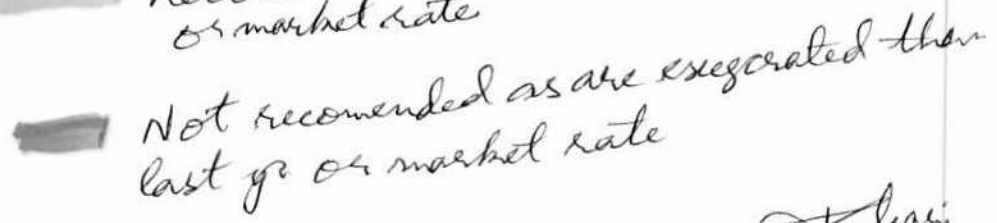 or market rate
Not recomended as are exegerated then
last yr or market rate